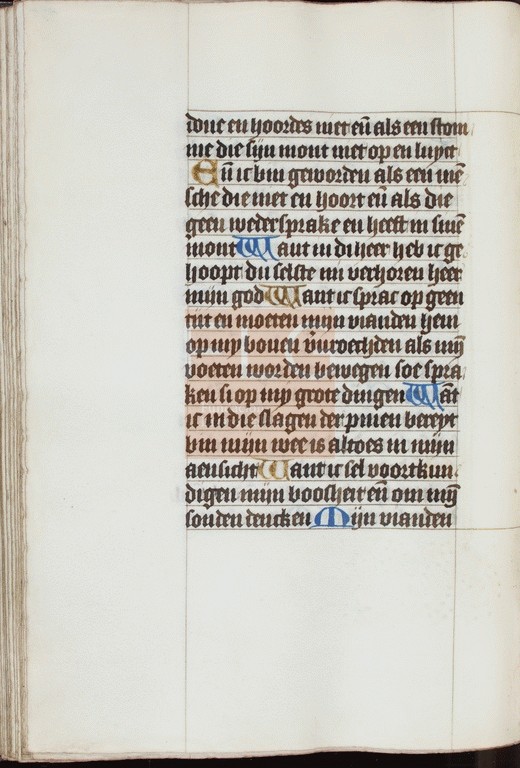 doue en hoordes niet en̄ als een stom
me die sijn mont niet op en luyct
En̄ ic bin geworden als een mē
sche die niet en hoort en̄ als die
geen wedersprake en heeft in sinē
mont Want in di heer heb ic ge
hoopt du selste mi verhoren heer
mijn god Want ic sprac op geen
tiit en moeten mijn vianden hem
op my bouen v̄uroechden als mȳ
voeten worden bewegen soe spra
ken si op my grote dingen Wāt
ic in die slagen der pinen bereyt
bin mijn wee is altoes in mijn
aensicht Want ic sel voort kun
digen mijn boosheit en̄ om mȳ
sonden dencken Mijn vianden